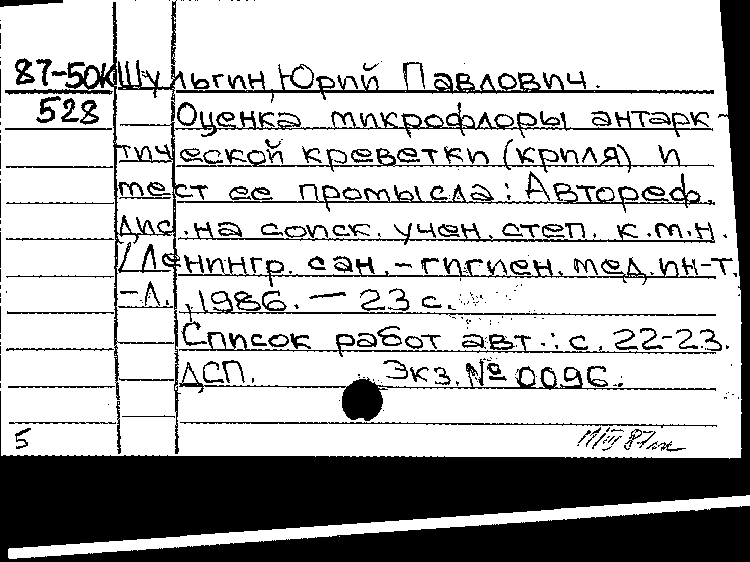 87-50К Шульгин, Юрий Павлович.
528 Оценка микрофлоры антарк-
тической креветки (криля) и
мест ее промысла: Автореф.
дис. на соиск. учен. степ. к.м.н.
/ Ленингр. сан.-гигиен. мед. ин-т.
-Л., 1986. — 23 с.
Список работ авт.: с. 22-23.
ДСП. Экз. № 0096.
5